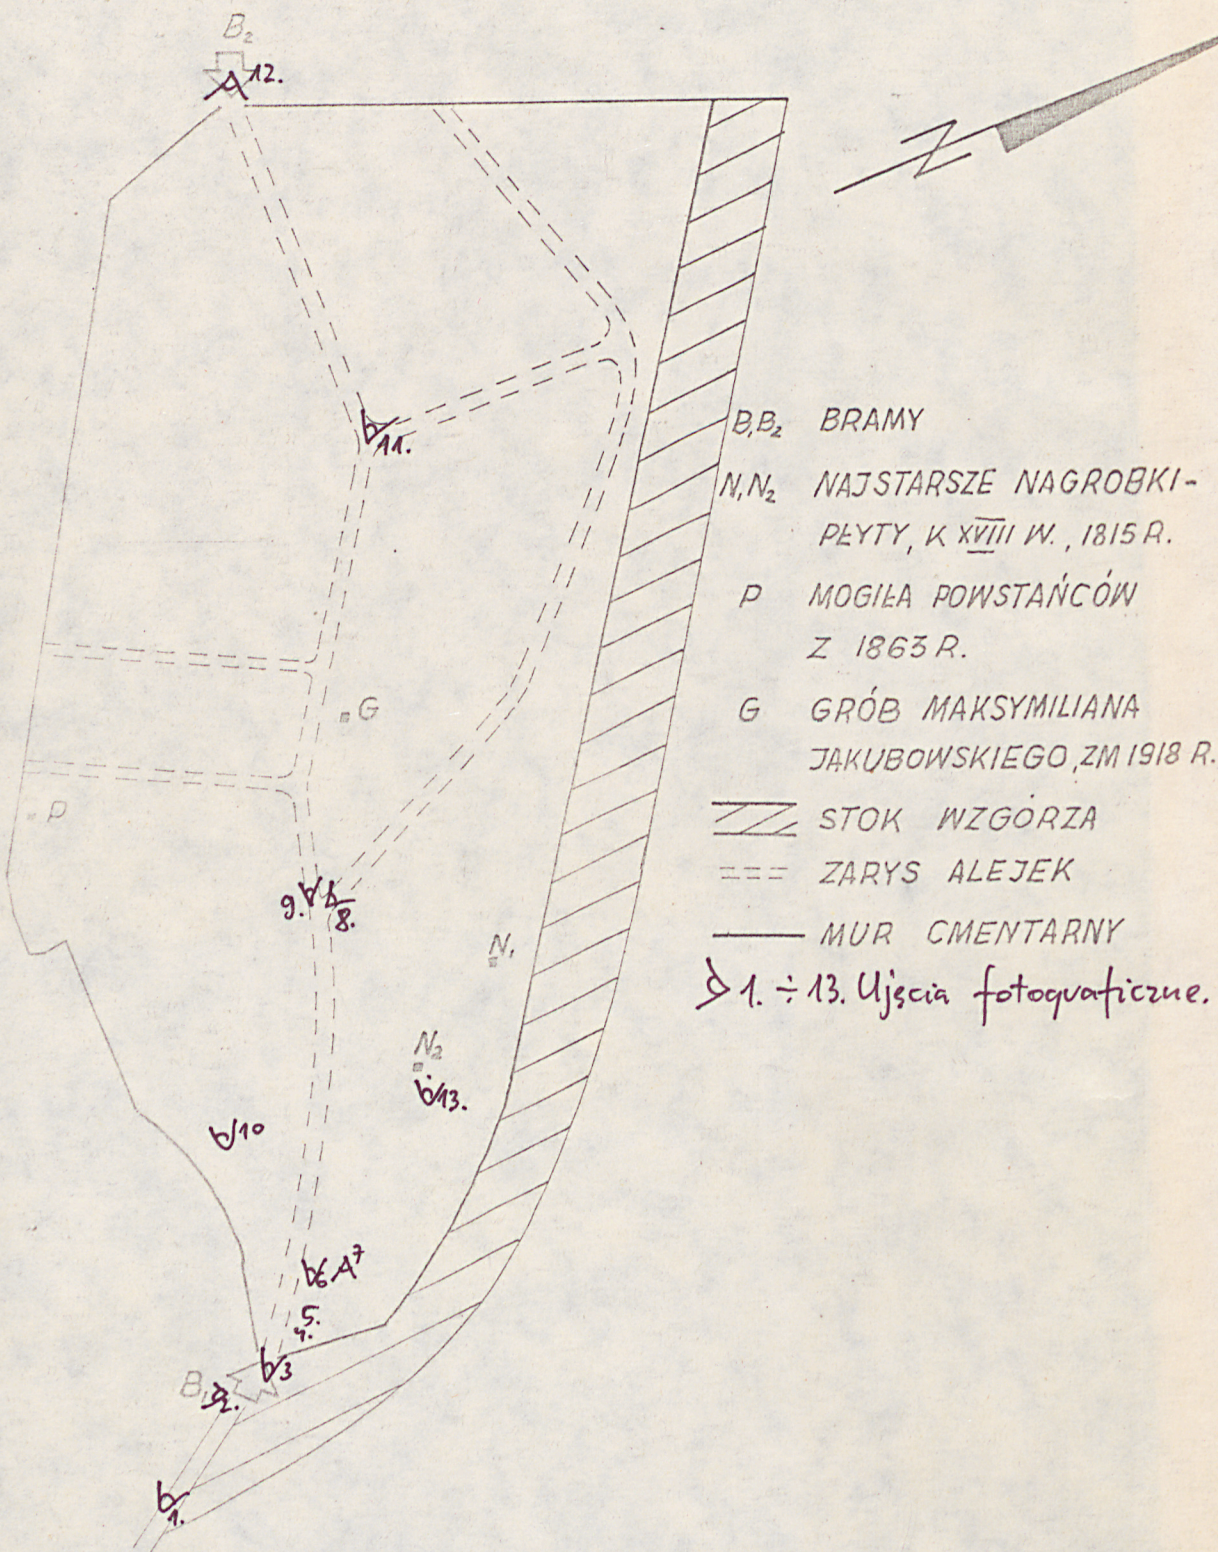 B₂
12.
11.
G
P
9.
8.
N₁
N₂
13.
10
6
7
5.
4.
3
B₁
2.
1.
N
B, B₂ BRAMY
N, N₂ NAJSTARSZE NAGROBKI-
PŁYTY, K XVIII W., 1815 R.
P MOGIŁA POWSTAŃCÓW
Z 1863 R.
G GRÓB MAKSYMILIANA
JAKUBOWSKIEGO, ZM 1918 R.
STOK WZGÓRZA
ZARYS ALEJEK
MUR CMENTARNY
1. ÷ 13. Ujęcia fotograficzne.